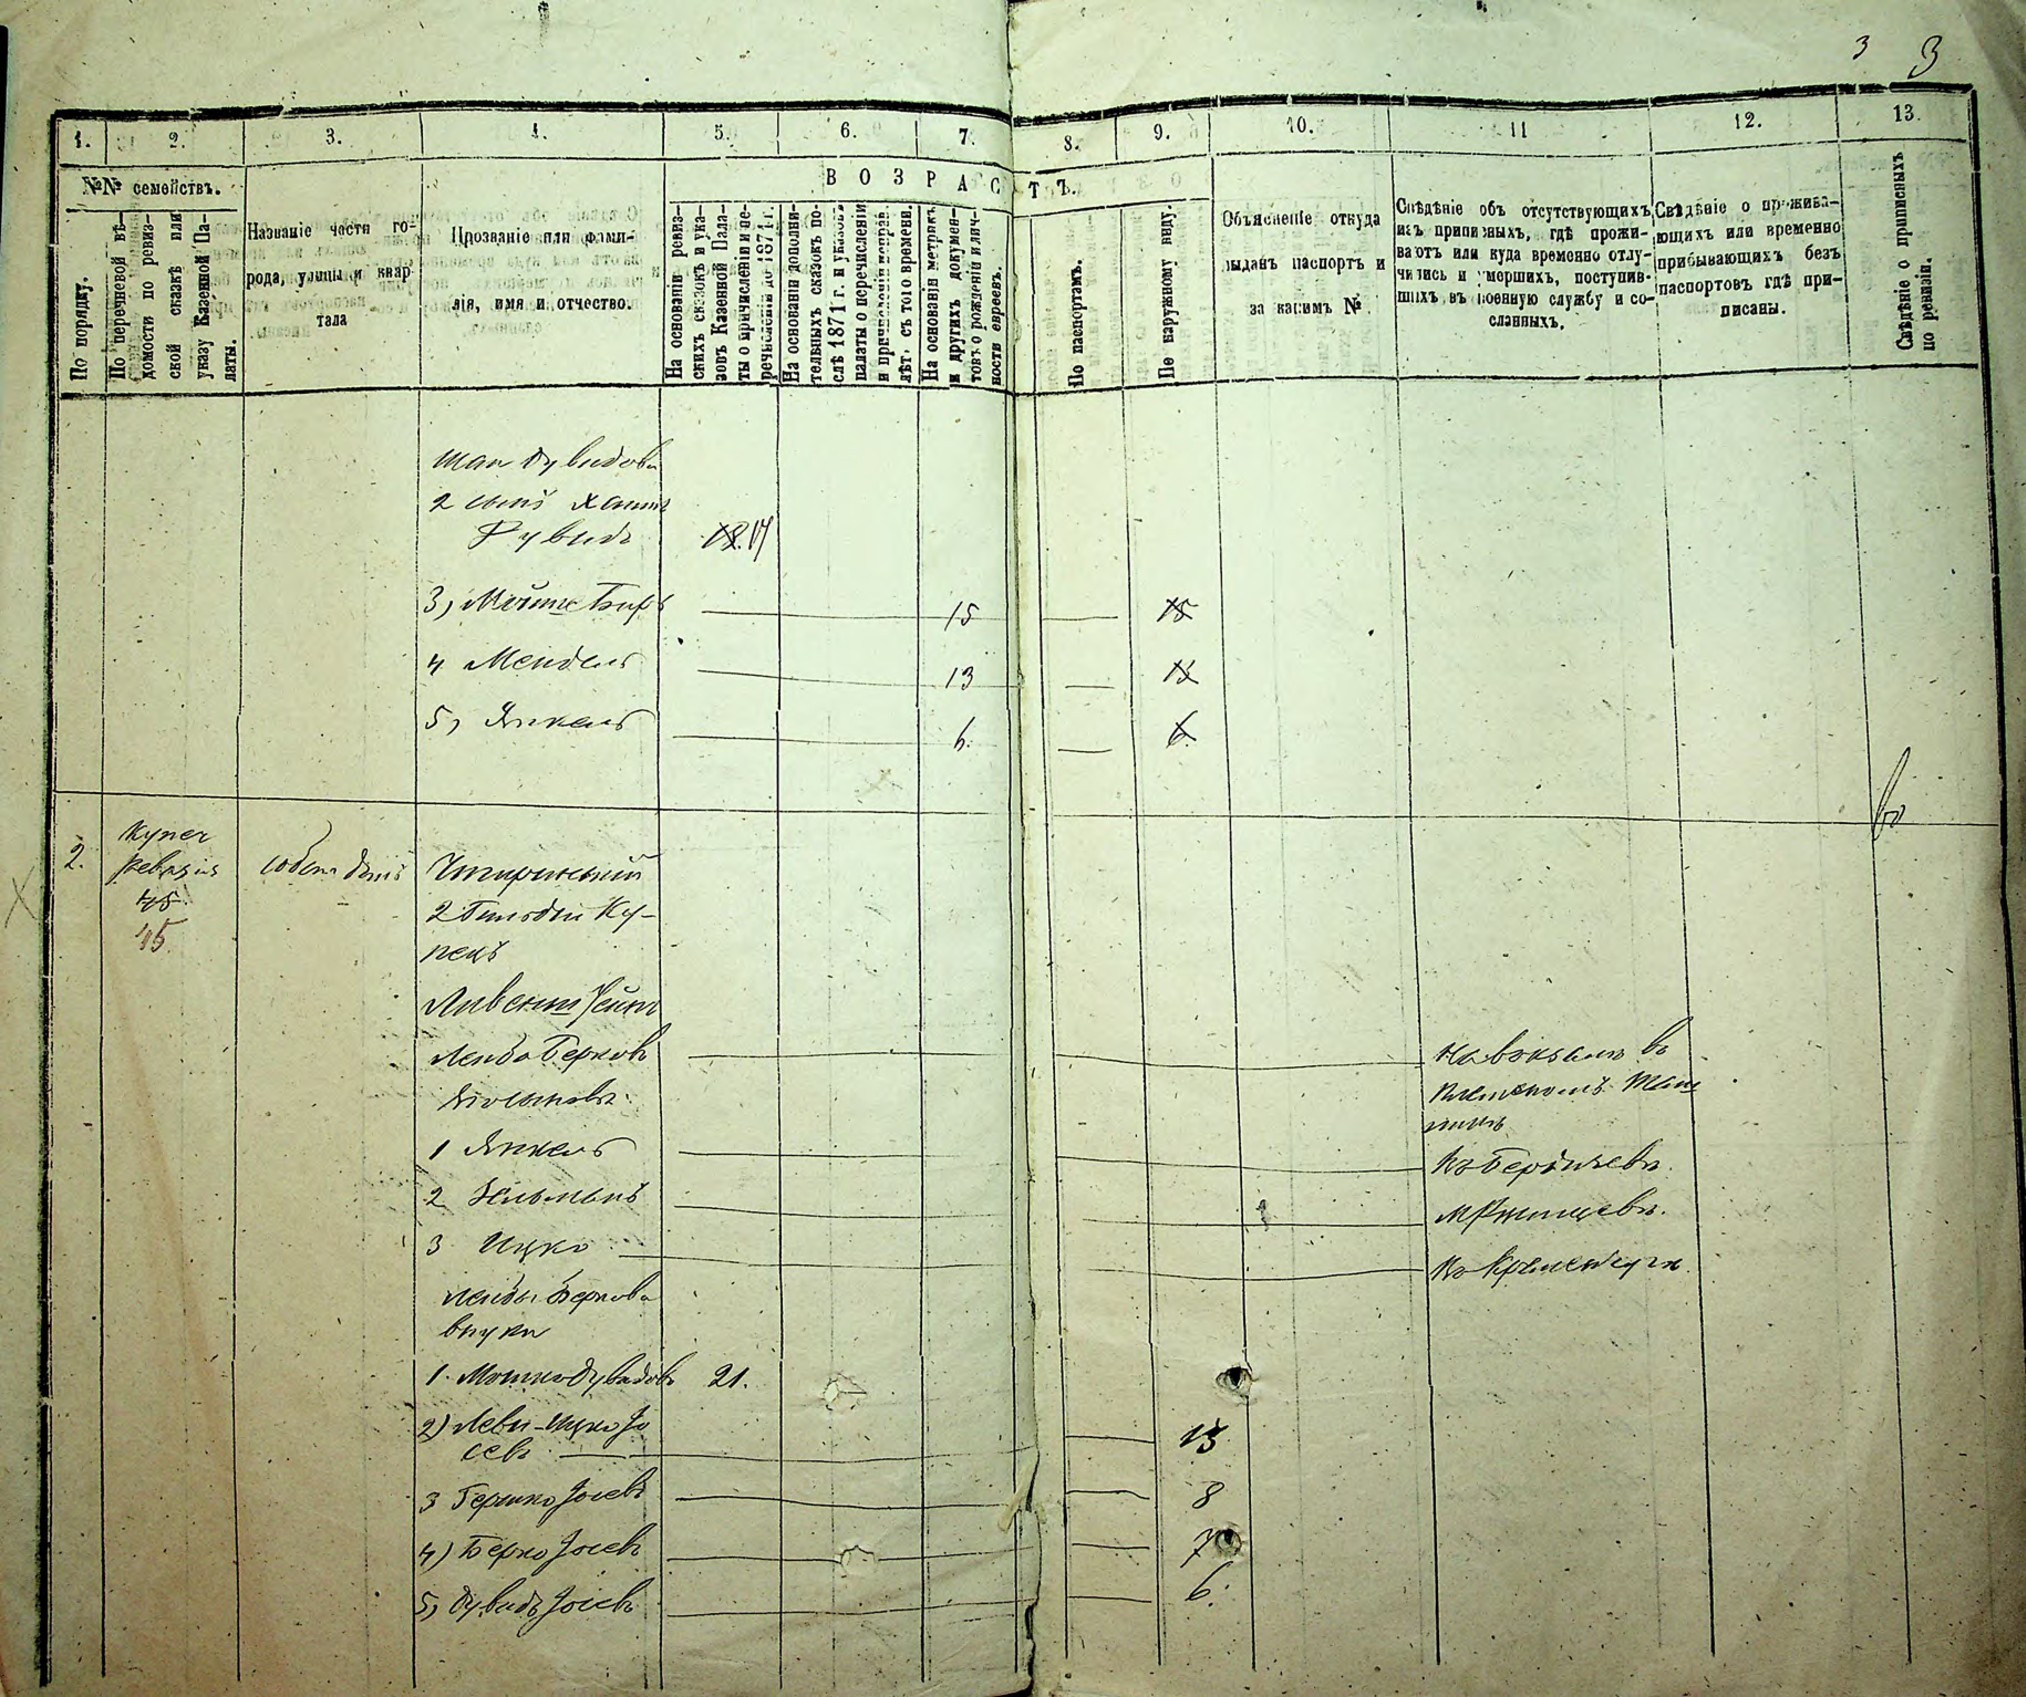 3 3
1. 2. 3. 4. 5. 6. 7. 8. 9. 10. 11 12. 13.
№№ семействъ.
ВОЗРАСТЪ.
По порядку.
По перечневой вѣ-
домости по ревиз-
ской сказкѣ или
указу Казенной Па-
латы.
Названіе части го-
рода, улицы и квар
тала
Прозваніе или фами-
лія, имя и отчество.
На основаніи ревиз-
скихъ сказокъ и ука-
зовъ Казенной Пала-
ты о причисленіи и пе-
речисленіи до 1871 г.
На основаніи дополни-
тельныхъ сказокъ по-
слѣ 1871 г. и указовъ
палаты о перечисленіи
лѣт. съ того времени.
На основаніи метрикъ
и другихъ докумен-
товъ о рожденіи и лич-
ности евреевъ.
По паспортамъ.
По наружному виду.
Объясненіе откуда
выданъ паспортъ и
за какимъ №
Свѣдѣніе объ отсутствующихъ
изъ приписныхъ, гдѣ прожи-
ваютъ или куда временно отлу-
чились и умершихъ, поступив-
шихъ въ военную службу и со-
сланныхъ.
Свѣдѣніе о прожива-
ющихъ или временно
прибывающихъ безъ
паспортовъ гдѣ при-
писаны.
Свѣдѣніе о приписныхъ
по ревизіи.
Дувидова
2 сынъ Хаимъ
Дувидъ 18. 17
3, Мойше Беръ 15 15
4 Мендель 13 13
5, Янкель 6. 6.
2. Купеч собств домъ Чигиринскій
ревизія 2 Гильдіи Ку-
45 пецъ
45
Лившиц
Лейба Берковъ На вокзалѣ въ
1 Янкель Въ Бердичевѣ.
2 Зельманъ М Ржищевѣ.
3 Ицко Въ Кременчугѣ
Лейбы Беркова
внуки
1. Мошко Дувидовъ 21.
2) Леви-Ицко Іо
севъ 13
3 Гершко Іосевъ 8
4) Берко Іосевъ 7
5, Дувидъ Іосевъ 6.